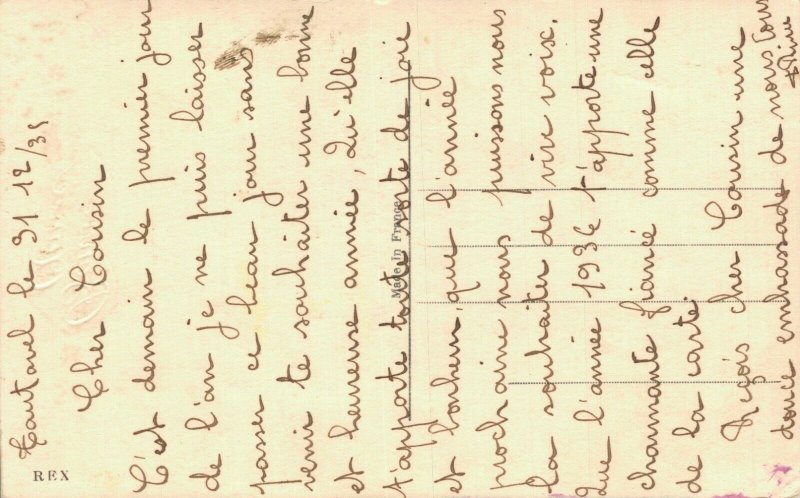 Tautavel le 31 12/35
Cher Cousin
C'est demain le premier jour
de l'an je ne puis laisser
passer ce beau jour sans
venir te souhaiter une bonne
et heureuse année, Qu'elle
t'apporte toute sorte de joie
et bonheur, que l'année
prochaine nous puissons nous
la souhaiter de vive voix.
Que l'année 1936 t'apporte une
charmante fiancé comme elle
de la carte.
Reçois cher Cousin une
douce embrassade de nous tous
REX
Made in France